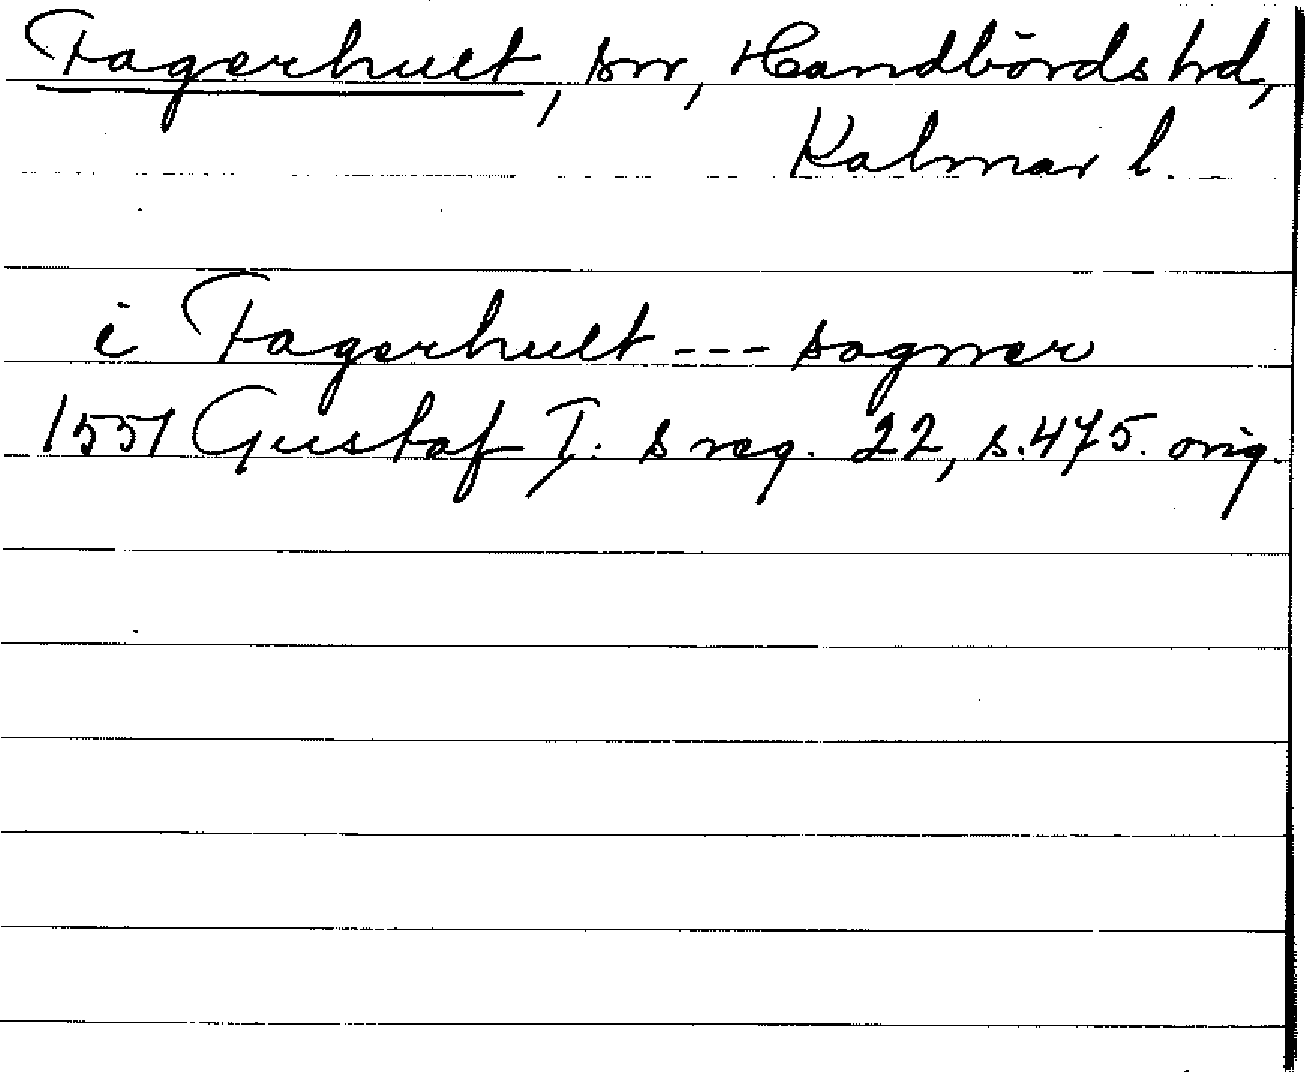 Fagerhult, sn, Handbörds hd,
Kalmar l.
i Fagerhult --- sogner
1551 Gustaf I: s reg. 22, s. 475. orig.